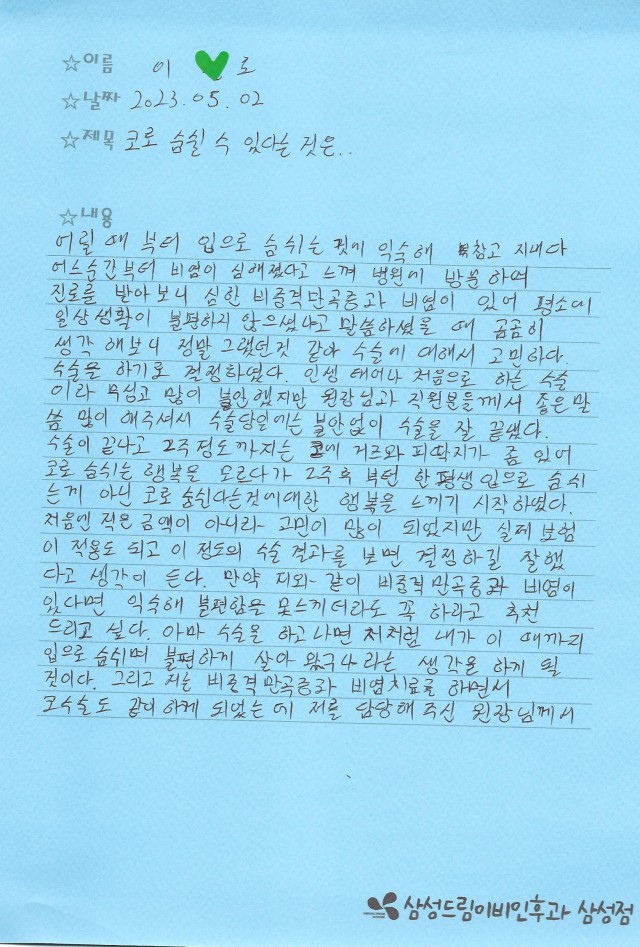 ☆이름 이 로
☆날짜 2023.05.02
☆제목 코로 숨쉴 수 있다는 것은..
☆내용
어릴 때 부터 입으로 숨쉬는 것에 익숙해 참고 지내다
어느순간부터 비염이 심해졌다고 느껴 병원에 방문하며
진료를 받아보니 심한 비중격만곡증과 비염이 있어 평소에
일상생활이 불편하지 않으셨냐고 말씀하셨을 때 곰곰히
생각 해보니 정말 그랬던것 같아 수술에 대해서 고민하다.
수술을 하기로 결정하였다. 인생 태어나 처음으로 하는 수술
이라 무섭고 많이 불안했지만 원장님과 직원분들께서 좋은말
씀 많이 해주셔서 수술당일에는 불안없이 수술을 잘 끝냈다.
수술이 끝나고 2주정도까지는 코에 거즈와 피딱지가 좀 있어
코로 숨쉬는 행복을 모르다가 2주 후 부턴 한평생 입으로 숨쉬
는게 아닌 코로 숨쉰다는것에대한 행복을 느끼기 시작하였다.
처음엔 적은 금액이 아니라 고민이 많이 되었지만 실제 보험
이 적용도 되고 이 정도의 수술 결과를 보면 결정하길 잘했
다고 생각이 든다. 만약 저와 같이 비중격만곡증과 비염이
있다면 익숙해 불편함을 못느끼더라도 꼭 하라고 추천
드리고 싶다. 아마 수술을 하고나면 저처럼 내가 이 때까지
입으로 숨쉬며 불편하게 살아 왔구나 라는 생각을 하게 될
것이다. 그리고 저는 비중격만곡증과 비염치료를 하면서
코수술도 같이하게 되었는데 저를 담당해주신 원장님께서
삼성드림이비인후과 삼성점